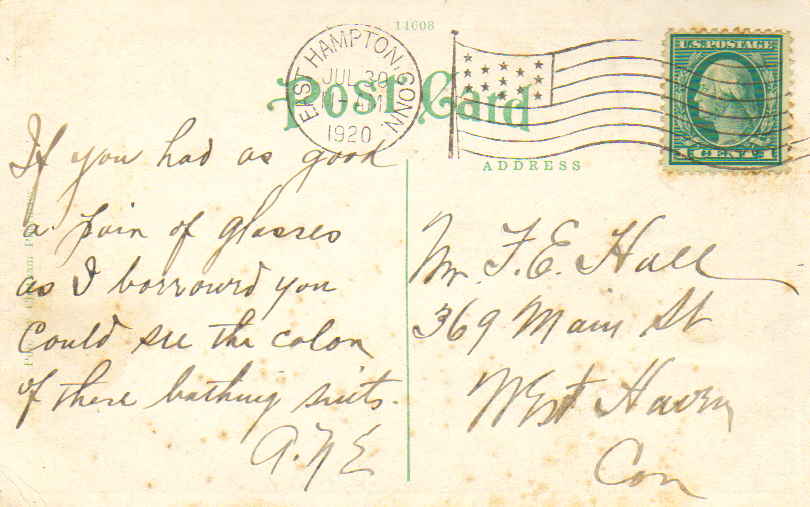 14608
EAST HAMPTON, CONN
JUL 30
1920
U.S. POSTAGE
1 CENT 1
Post Card
ADDRESS
If you had as good
a pair of glasses
as I borrowed you
Could see the color
of there bathing suits.
Mr. F. E. Hall
369 Main St
West Haven
Con